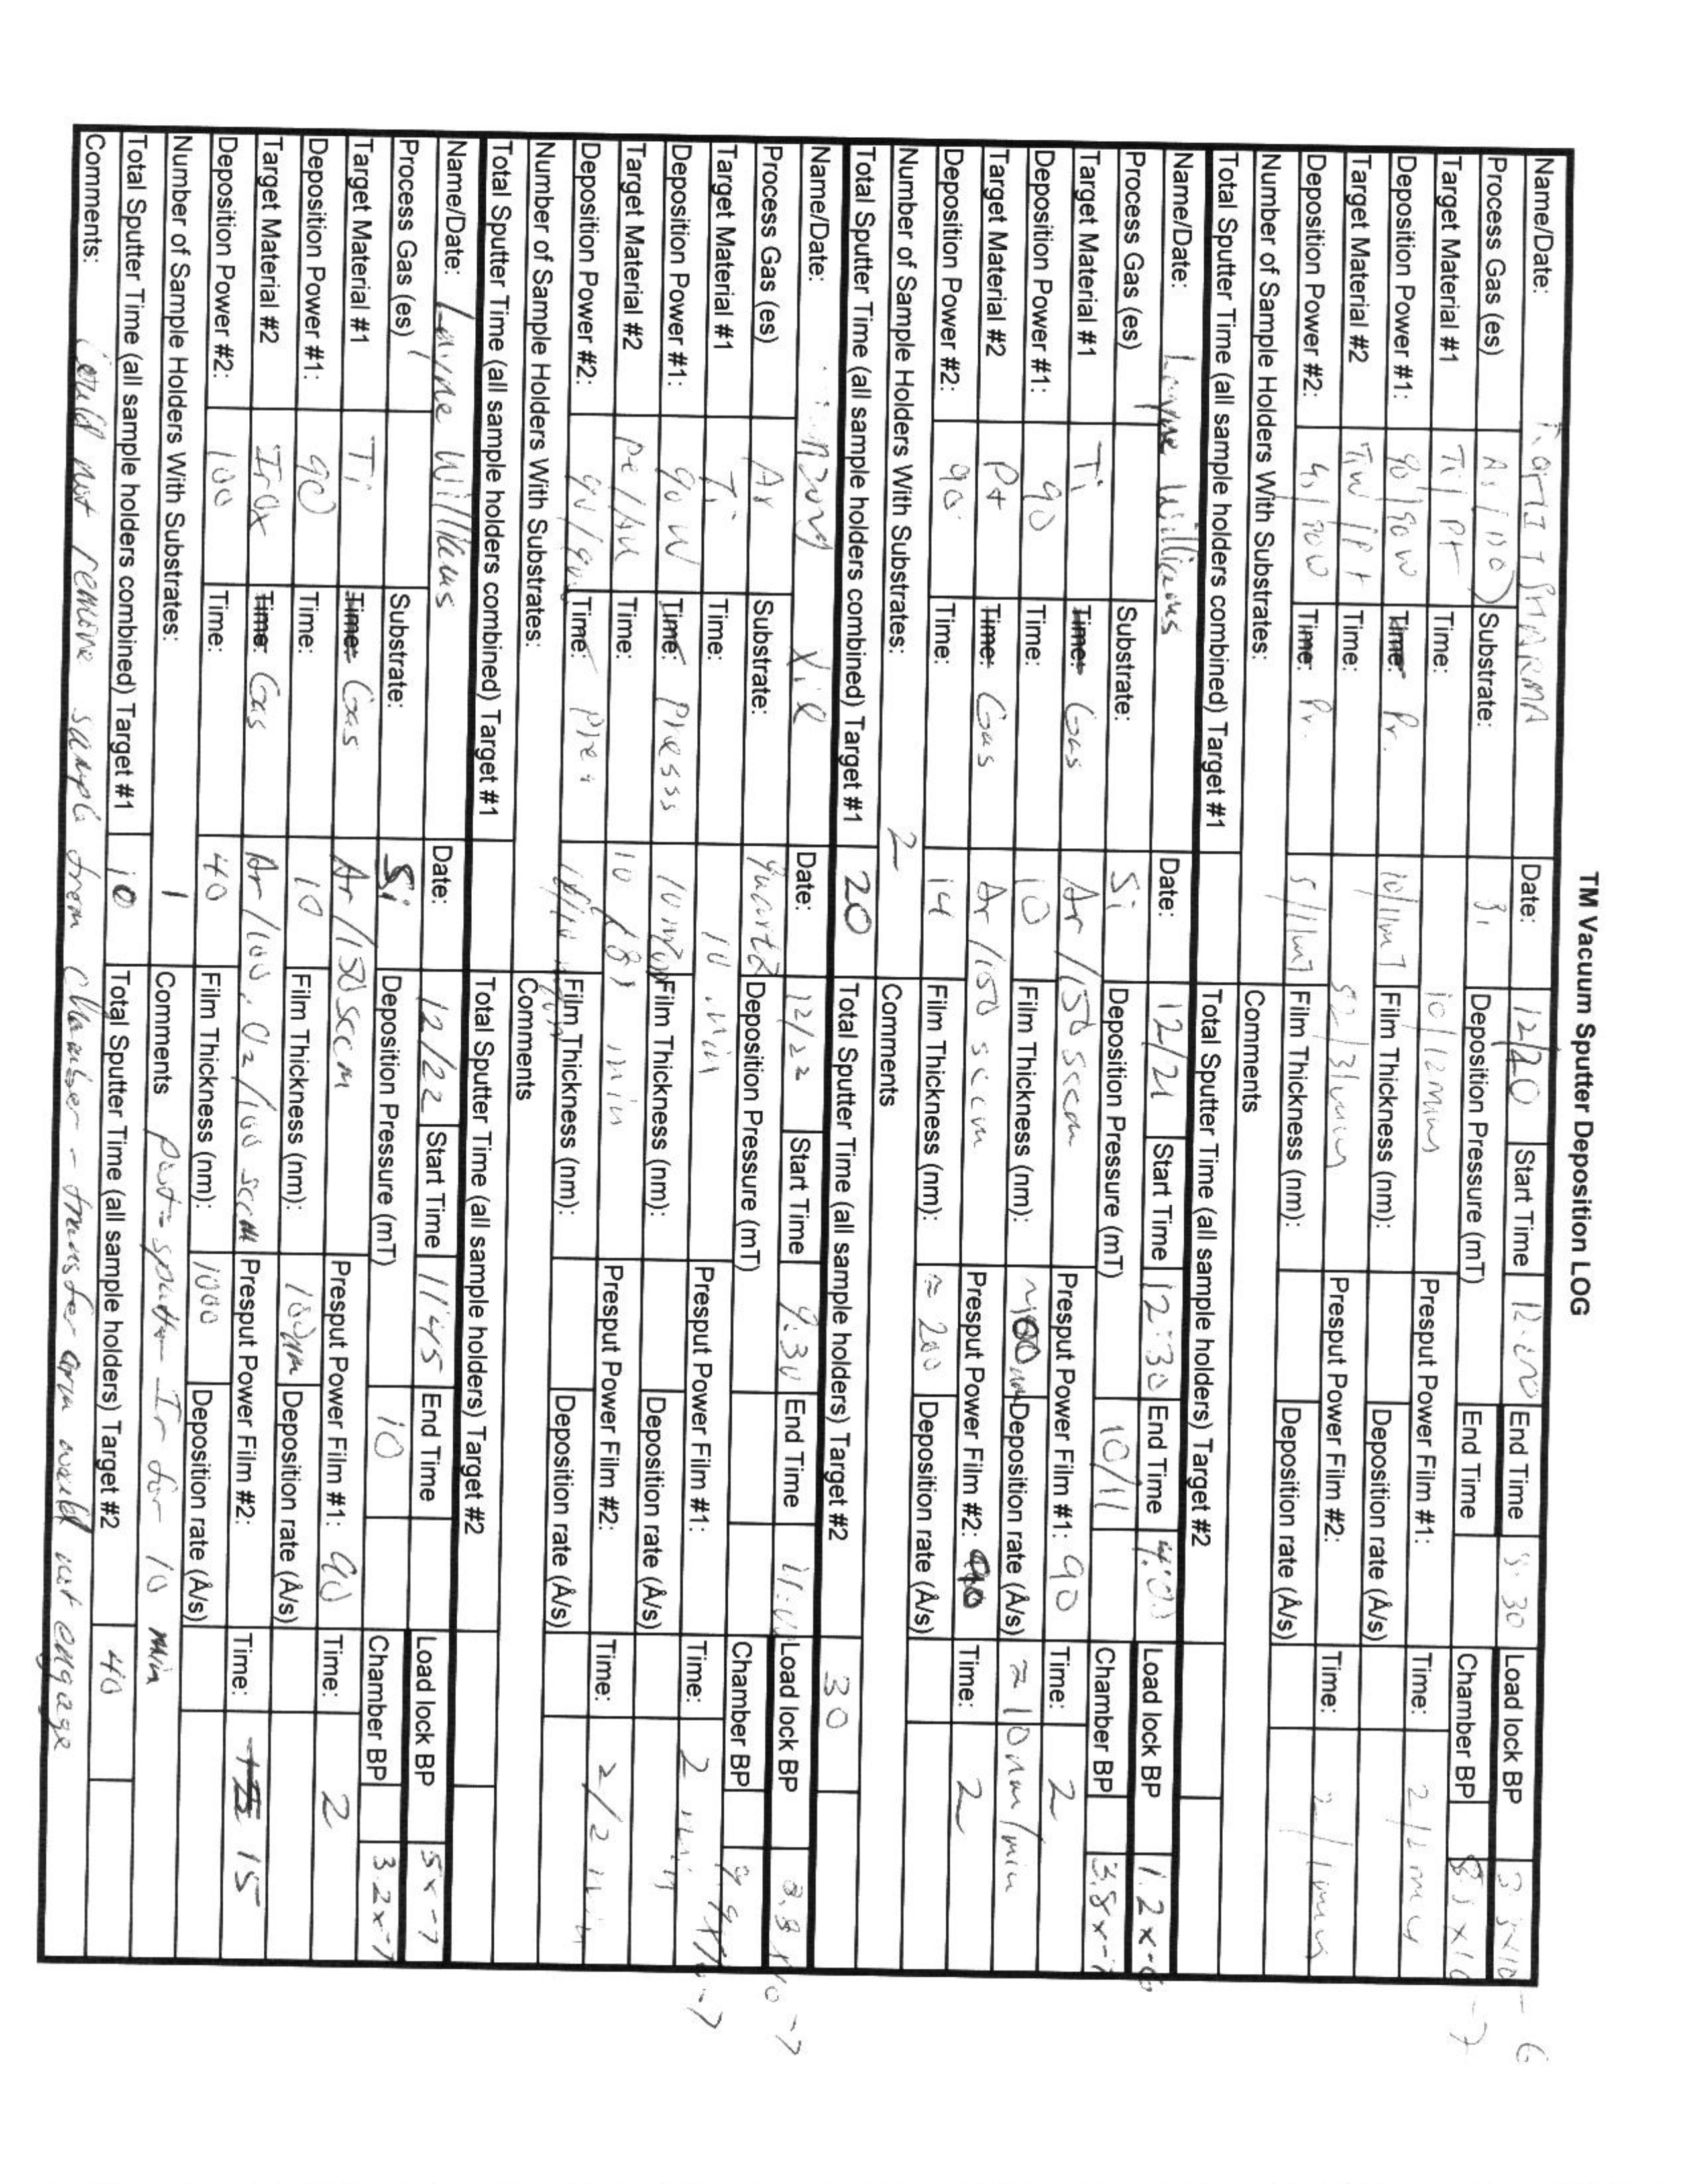 TM Vacuum Sputter Deposition LOG
Name/Date: SHARMA Date: 12/20 Start Time 12:00 End Time 3:30 Load lock BP
Process Gas (es) Substrate: Deposition Pressure (mT) End Time Chamber BP
Target Material #1 Ti/Pt Time: 10/12 mins Presput Power Film #1: Time:
Deposition Power #1: 90/90W Time: Pr. 10/11mT Film Thickness (nm): Deposition rate (Å/s)
Target Material #2 TiW/Pt Time: Presput Power Film #2: Time:
Deposition Power #2: Time: Pr. Film Thickness (nm): Deposition rate (Å/s)
Number of Sample Holders With Substrates: Comments
Total Sputter Time (all sample holders combined) Target #1 Total Sputter Time (all sample holders) Target #2
Name/Date: Layne Williams Date: 12/21 Start Time 12:30 End Time 4:00 Load lock BP 1.2x-6
Process Gas (es) Substrate: Si Deposition Pressure (mT) 10/11 Chamber BP 3.8x-7
Target Material #1 Ti Time: Gas Ar/150 sccm Presput Power Film #1: 90 Time: 2
Deposition Power #1: 90 Time: 10 Film Thickness (nm): ~100nm Deposition rate (Å/s) ≈10nm/min
Target Material #2 Pt Time: Gas Ar/150 sccm Presput Power Film #2: 90 Time: 2
Deposition Power #2: 90 Time: 14 Film Thickness (nm): ≈200 Deposition rate (Å/s)
Number of Sample Holders With Substrates: 2 Comments
Total Sputter Time (all sample holders combined) Target #1 20 Total Sputter Time (all sample holders) Target #2 30
Name/Date: Xie Date: 12/22 Start Time 9:30 End Time Load lock BP 3.8x10-7
Process Gas (es) Ar Substrate: quartz Deposition Pressure (mT) Chamber BP
Target Material #1 Ti Time: 10 min Presput Power Film #1: Time: 2 min
Deposition Power #1: 90W Time: Press Film Thickness (nm): Deposition rate (Å/s)
Target Material #2 Time: min Presput Power Film #2: Time: 2/2 min
Deposition Power #2: Time: Film Thickness (nm): Deposition rate (Å/s)
Number of Sample Holders With Substrates: Comments
Total Sputter Time (all sample holders combined) Target #1 Total Sputter Time (all sample holders) Target #2
Name/Date: Layne Williams Date: 12/22 Start Time 1145 End Time Load lock BP 5x-7
Process Gas (es) Substrate: Si Deposition Pressure (mT) 10 Chamber BP 3.2x-7
Target Material #1 Ti Time: Gas Ar/150 sccm Presput Power Film #1: 90 Time: 2
Deposition Power #1: 90 Time: 10 Film Thickness (nm): 100nm Deposition rate (Å/s)
Target Material #2 IrOx Time: Gas Ar/100, O2/100 sccm Presput Power Film #2: Time: 15
Deposition Power #2: 100 Time: 40 Film Thickness (nm): 1000 Deposition rate (Å/s)
Number of Sample Holders With Substrates: 1 Comments post-sputter Ir for 10 min
Total Sputter Time (all sample holders combined) Target #1 10 Total Sputter Time (all sample holders) Target #2 40
Comments: Could not remove sample from chamber - transfer arm would not engage